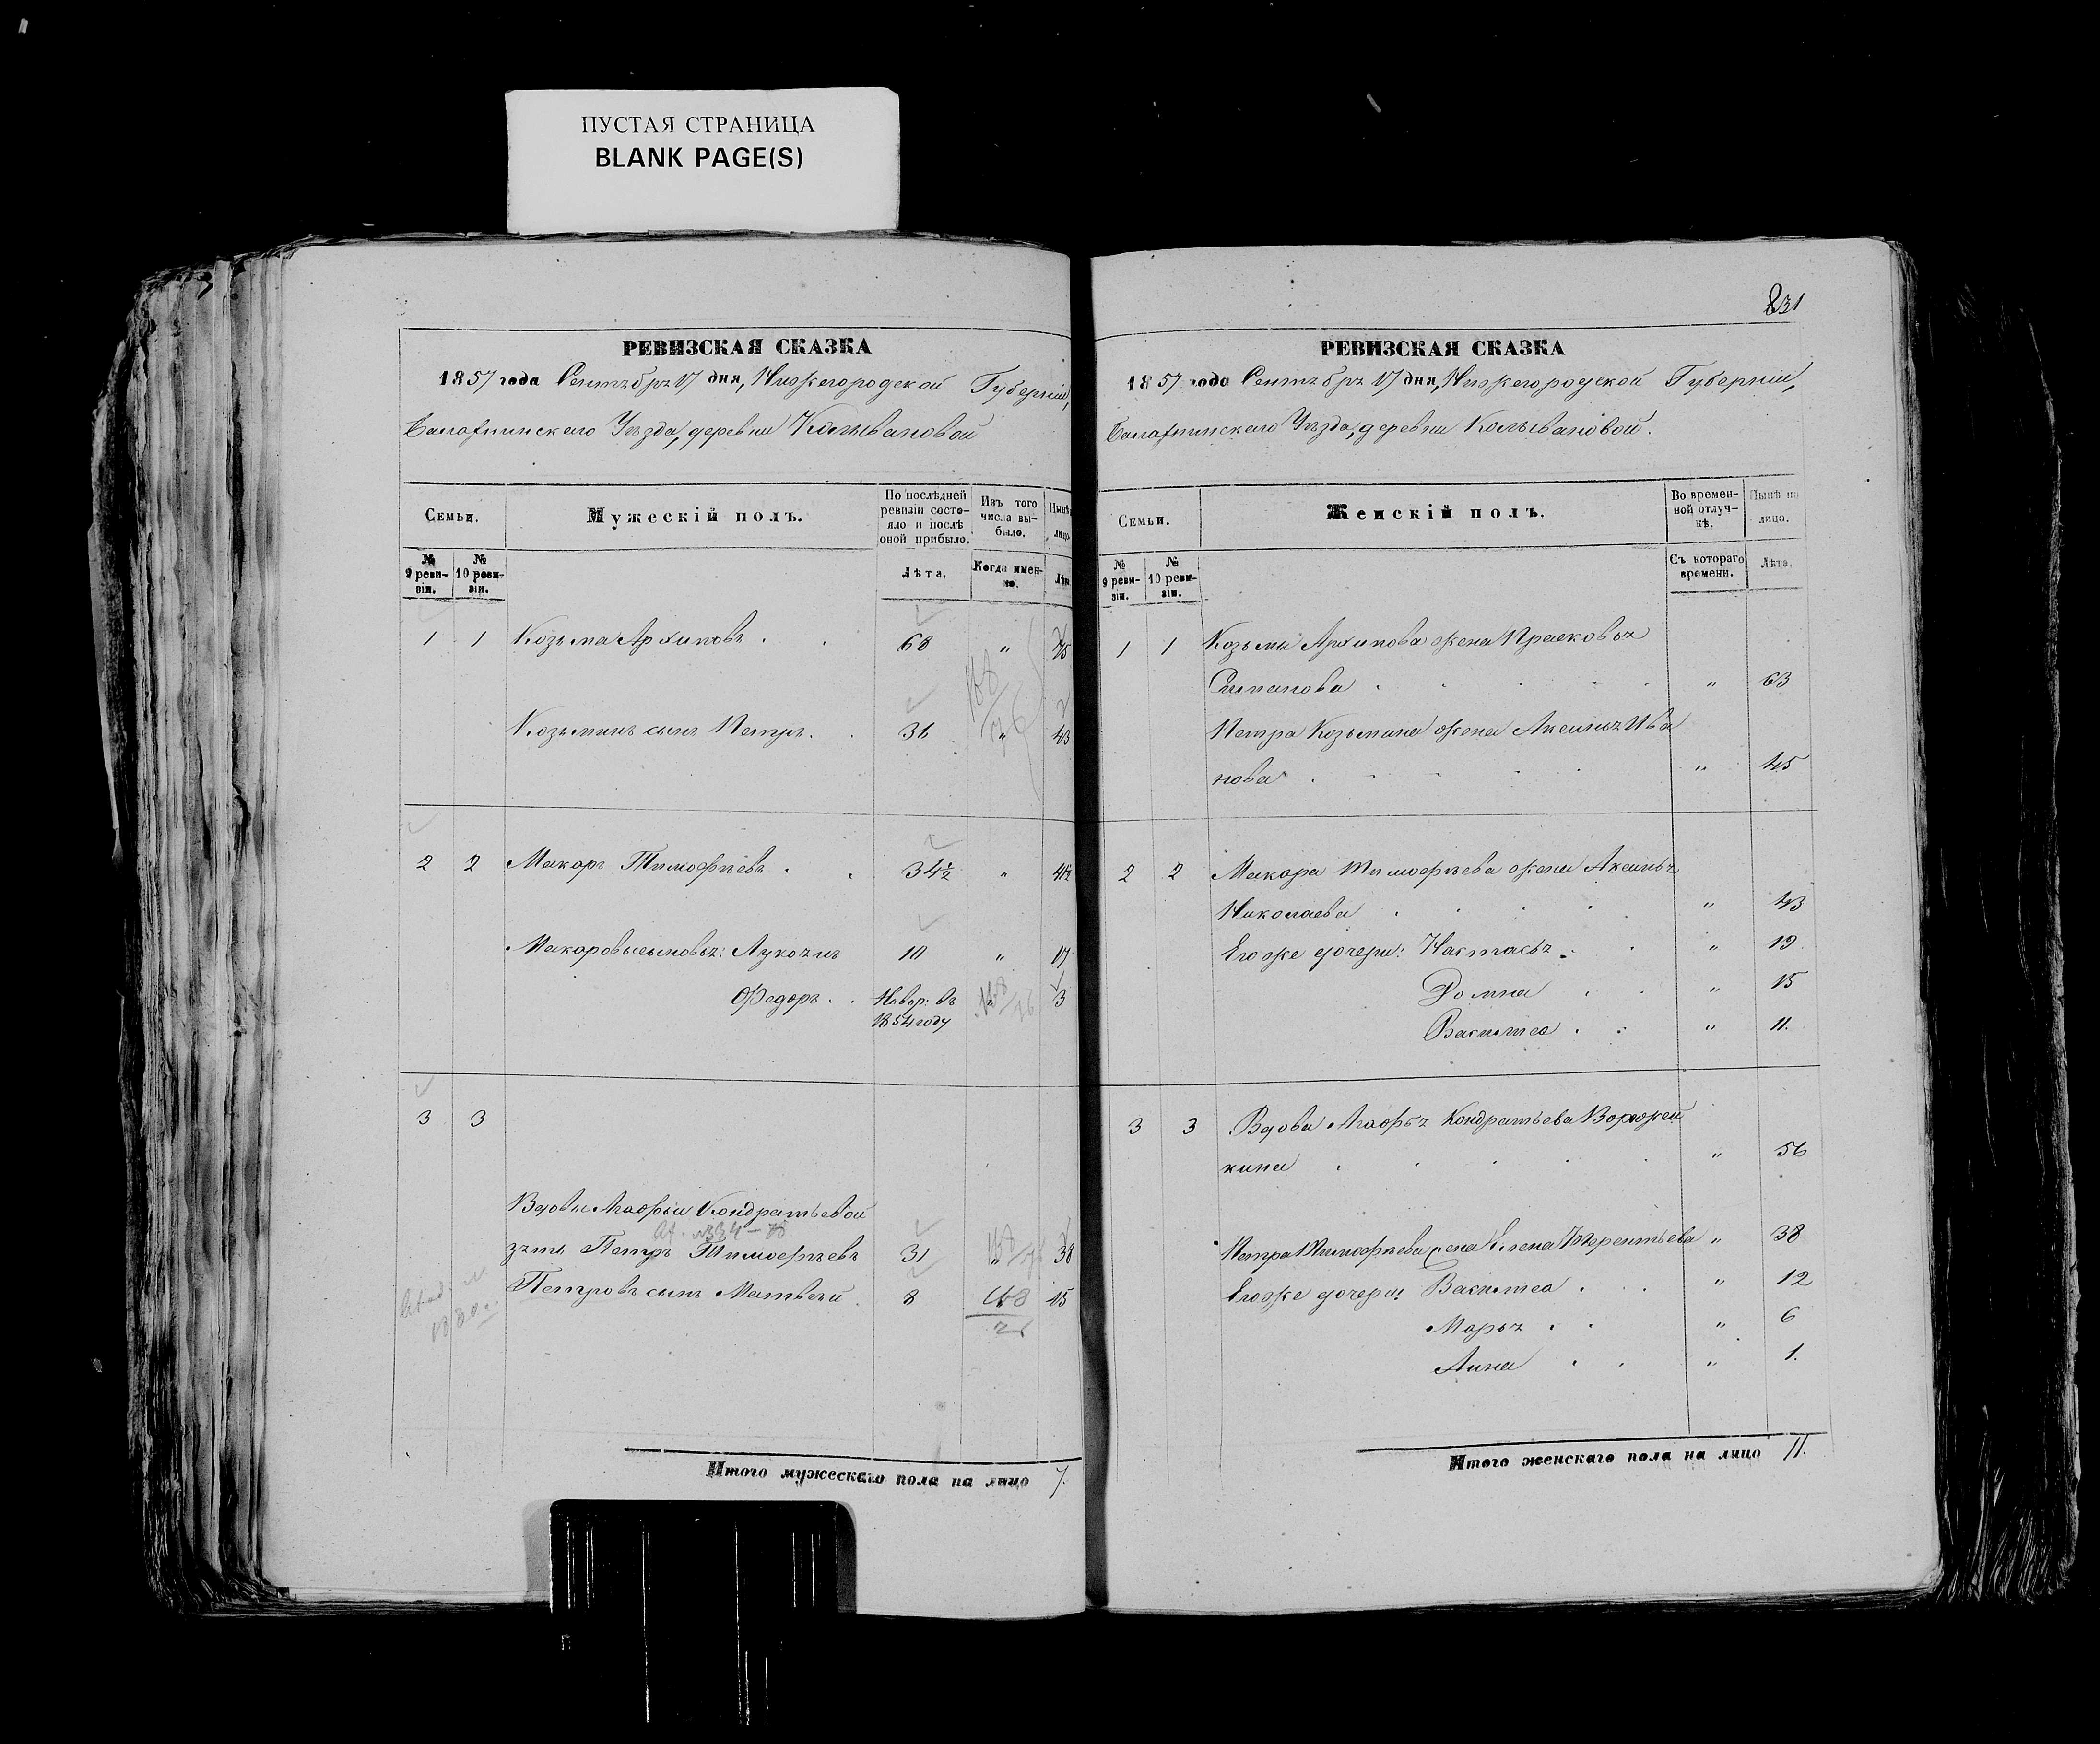 ПУСТАЯ СТРАНИЦА
BLANK PAGE(S)
РЕВИЗСКАЯ СКАЗКА
1857 года Сентября 17 дня, Нижегородской Губерніи,
Балахнинскаго Уѣзда, деревни Колывановой
Семьи.
Мужескій полъ.
По послѣдней ревизіи состояло и послѣ оной прибыло.
Изъ того числа выбыло.
Нынѣ лицо
№ 9 ревизіи.
№ 10 ревизіи.
Лѣта.
Когда именно.
Лѣта
1 1 Козьма Архиповъ . . 68 " 75
Козьминъ сынъ Петръ . . 36 " 43
2 2 Макаръ Тимофѣевъ . . 34½ " 41½
Макаровы сыновья: Лукоянъ 10 " 17
Федоръ . . Новор: въ " 3
1854 году
3 3
Вдовы Агафьи Кондратьевой
зять Петръ Тимофѣевъ 31 " 38
Петровъ сынъ Матвѣй . 8 15
Итого мужескаго пола на лицо 7.
831
РЕВИЗСКАЯ СКАЗКА
1857 года Сентября 17 дня, Нижегородской Губерніи,
Балахнинскаго Уѣзда, деревни Колывановой.
Семьи.
Женскій полъ.
Во временной отлучкѣ.
Нынѣ на лицо.
№ 9 ревизіи.
№ 10 ревизіи.
Съ котораго времени.
Лѣта.
1 1 Козьмы Архипова жена Прасковья
Степанова " 63
Петра Козьмина жена Аксинья Ива
нова . " 45
2 2 Макара Тимофѣева жена Аксинья
Николаева . " 43
Его же дочери: Настасья . " 19
Домна . " 15
Васи­лиса . " 11.
3 3 Вдова Агафья Кондратьева Ворожей
кина . " 56
Петра Тимофѣева жена Елена Терентьева " 38
Его же дочери Васи­лиса . " 12
Марья . . " 6
Анна . . " 1.
Итого женскаго пола на лицо 11.